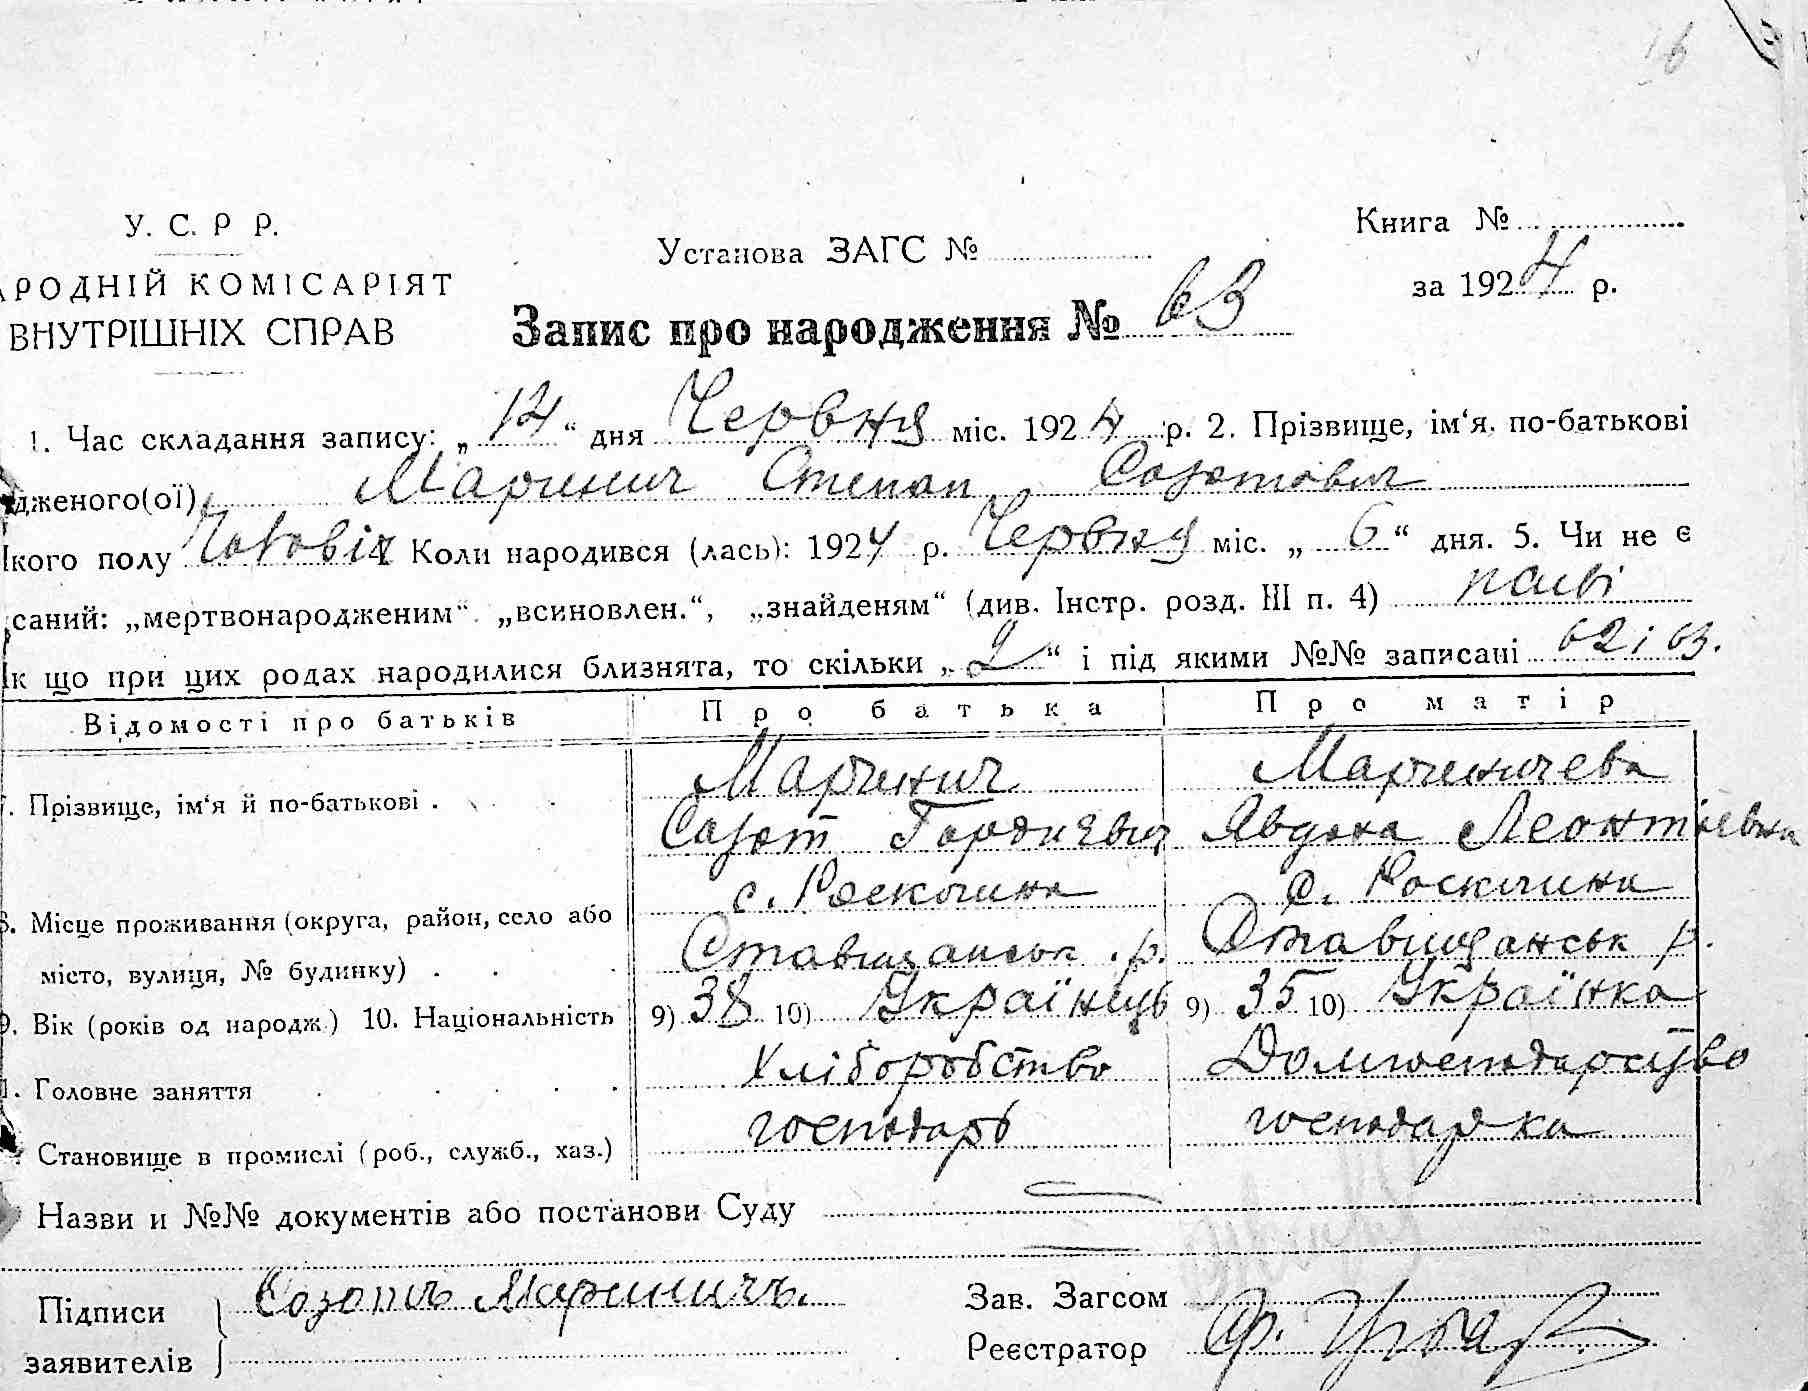 16
У. С. Р Р.
АРОДНІЙ КОМІСАРІЯТ
ВНУТРІШНІХ СПРАВ
Установа ЗАГС №
Книга №
за 1924 р.
Запис про народження № 63
1. Час складання запису: „14“ дня Червня міс. 1924 р. 2. Прізвище, ім‘я, по-батькові
дженого(ої) Маринич Степан Созотович
кого полу Чоловіч 4 Коли народився (лась): 1924 р. Червня міс. „6“ дня. 5. Чи не є
саний: „мертвонародженим“ „всиновлен.“, „знайденям“ (див. Інстр. розд. III п. 4)
к що при цих родах народилися близнята, то скільки „2“ і під якими №№ записані 62 і 63.
Відомості про батьків Про батька Про матір
7. Прізвище, ім‘я й по-батькові . Маринич Мариничева
Созот Гордиєвич Явдоха Леонтієвна
8. Місце проживання (округа, район, село або с. Роскошна с. Роскошна
місто, вулиця, № будинку) . Ставищанськ. р. Ставищанськ р.
9. Вік (років од народж.) 10. Національність 9) 38 10) Українець 9) 35 10) Українка
1. Головне заняття Хліборобство Домгосподарство
Становище в промислі (роб., служб., хаз.) господарь господарка
Назви и №№ документів або постанови Суду
Підписи Созопъ Мариничъ.
заявителів
Зав. Загсом
Реєстратор